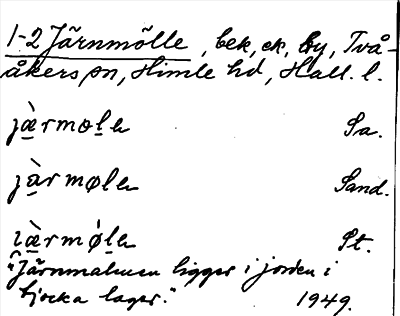 1-2 Järnmölle, bek, ek, by, Två-
åkers sn, Himle hd, Hall. l.
jæ̀rmølɐ Sa.
jàrmølɐ Sand.
ı̯æ̀rmǿlɐ St.
"Järnmalmen ligger i jorden i
tjocka lager." 1949.